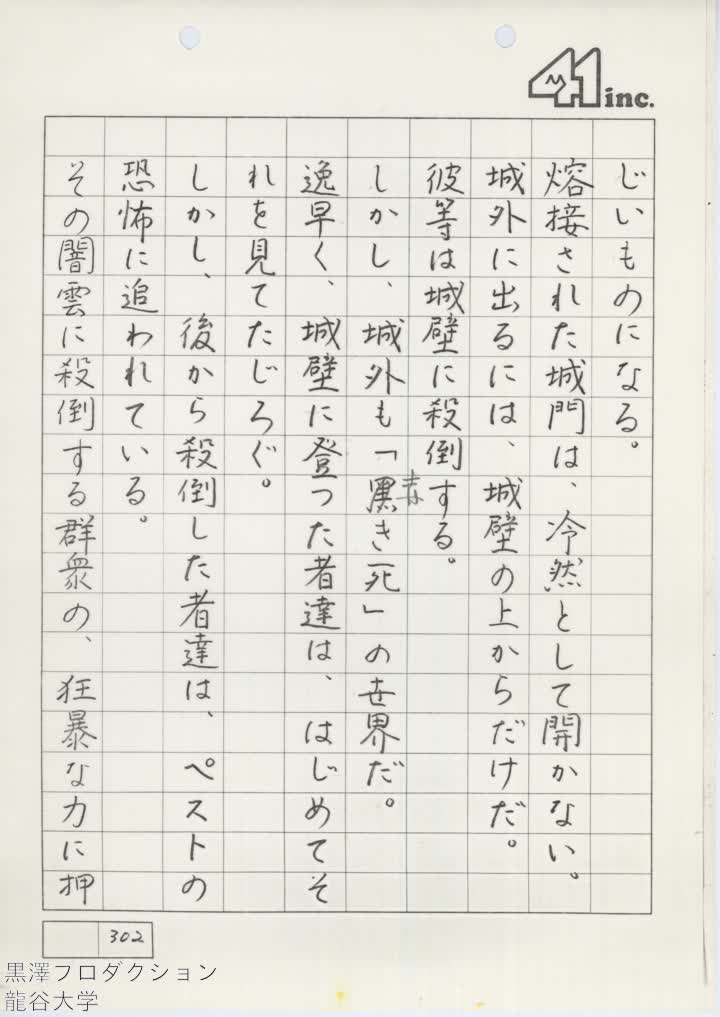 41 inc.
じいものになる。
熔接された城門は、冷然として開かない。
城外に出るには、城壁の上からだけだ。
彼等は城壁に殺倒する。
しかし、城外も「黒き死」の世界だ。
赤
逸早く、城壁に登った者達は、はじめてそ
れを見てたじろぐ。
しかし、後から殺倒した者達は、ペストの
恐怖に追われている。
その闇雲に殺倒する群衆の、狂暴な力に押
302
黒澤プロダクション
龍谷大学